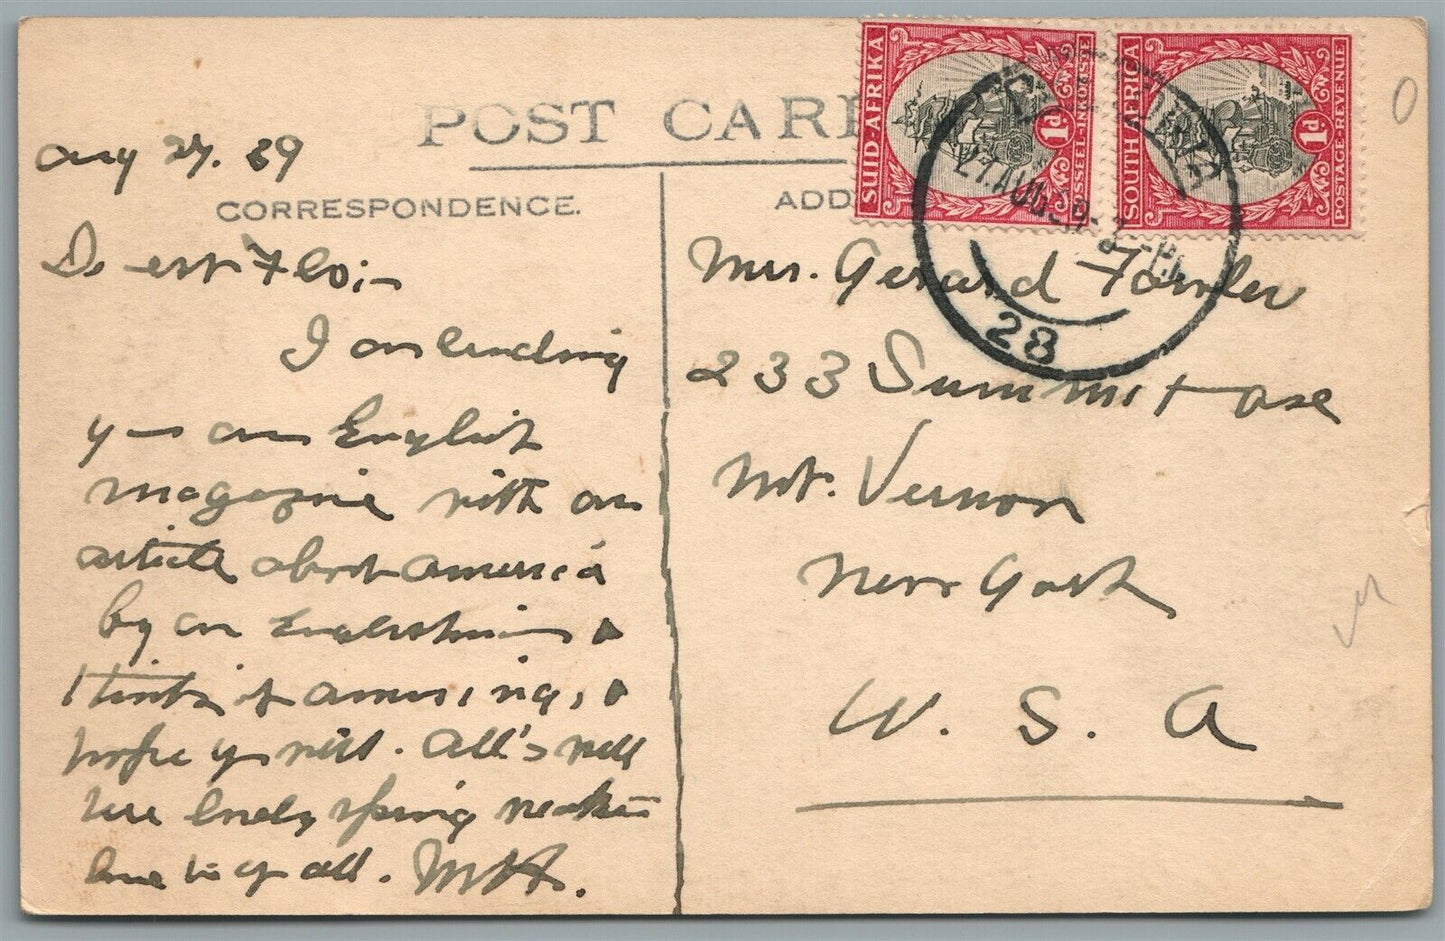 POST CAR
Aug 27. 39
CORRESPONDENCE.
Dearest Floi,-
I am sending
you an English
magazine with an
article about America
by an Englishman &
I think it amusing, &
hope you will. All's well
here lovely spring weather
love to you all. MH.
ADD
Mrs. Gerard Fowler
233 Summit Ave
Mt. Vernon
New York
U. S. A
SUID-AFRIKA
POSSEEL-INKOMSTE
1d
SOUTH AFRICA
POSTAGE-REVENUE
1d
27. AUG 39-3 - PM
28